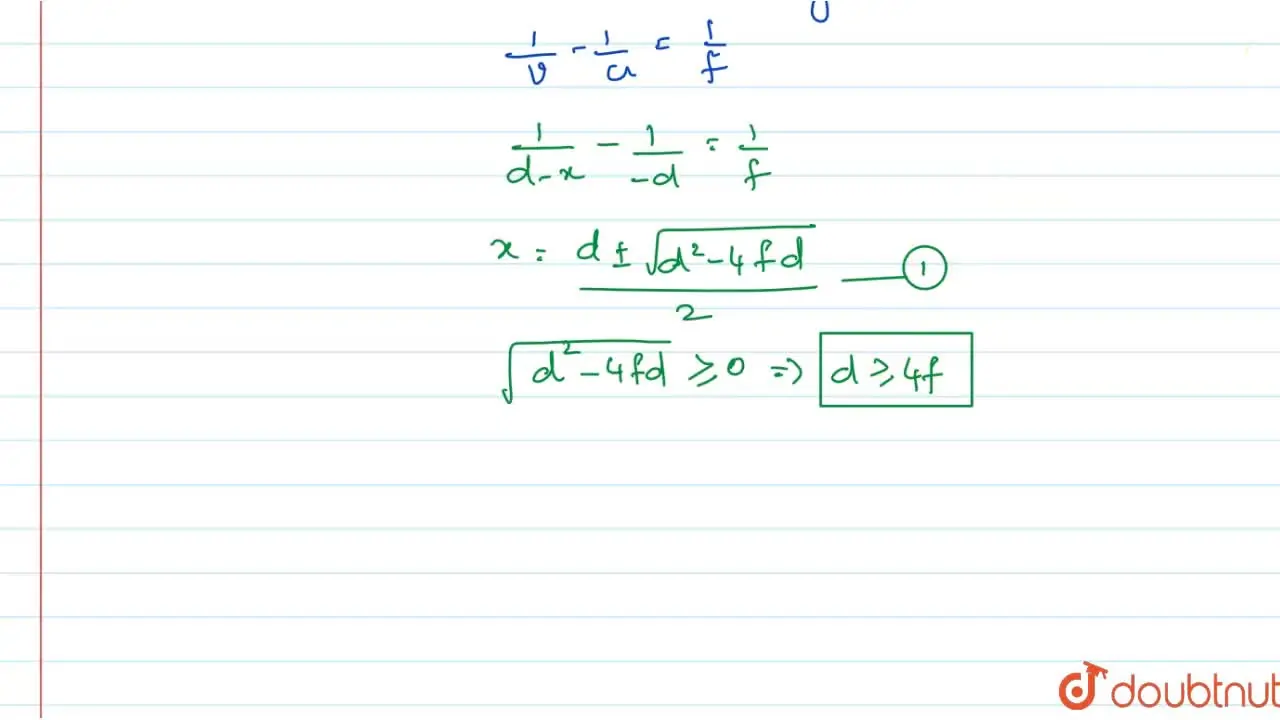 1/v - 1/u = 1/f
1/(d-x) - 1/(-d) = 1/f
x = (d ± √(d² - 4fd))/2 —— ①
√(d² - 4fd) ≥ 0 ⇒ d ≥ 4f
doubtnut